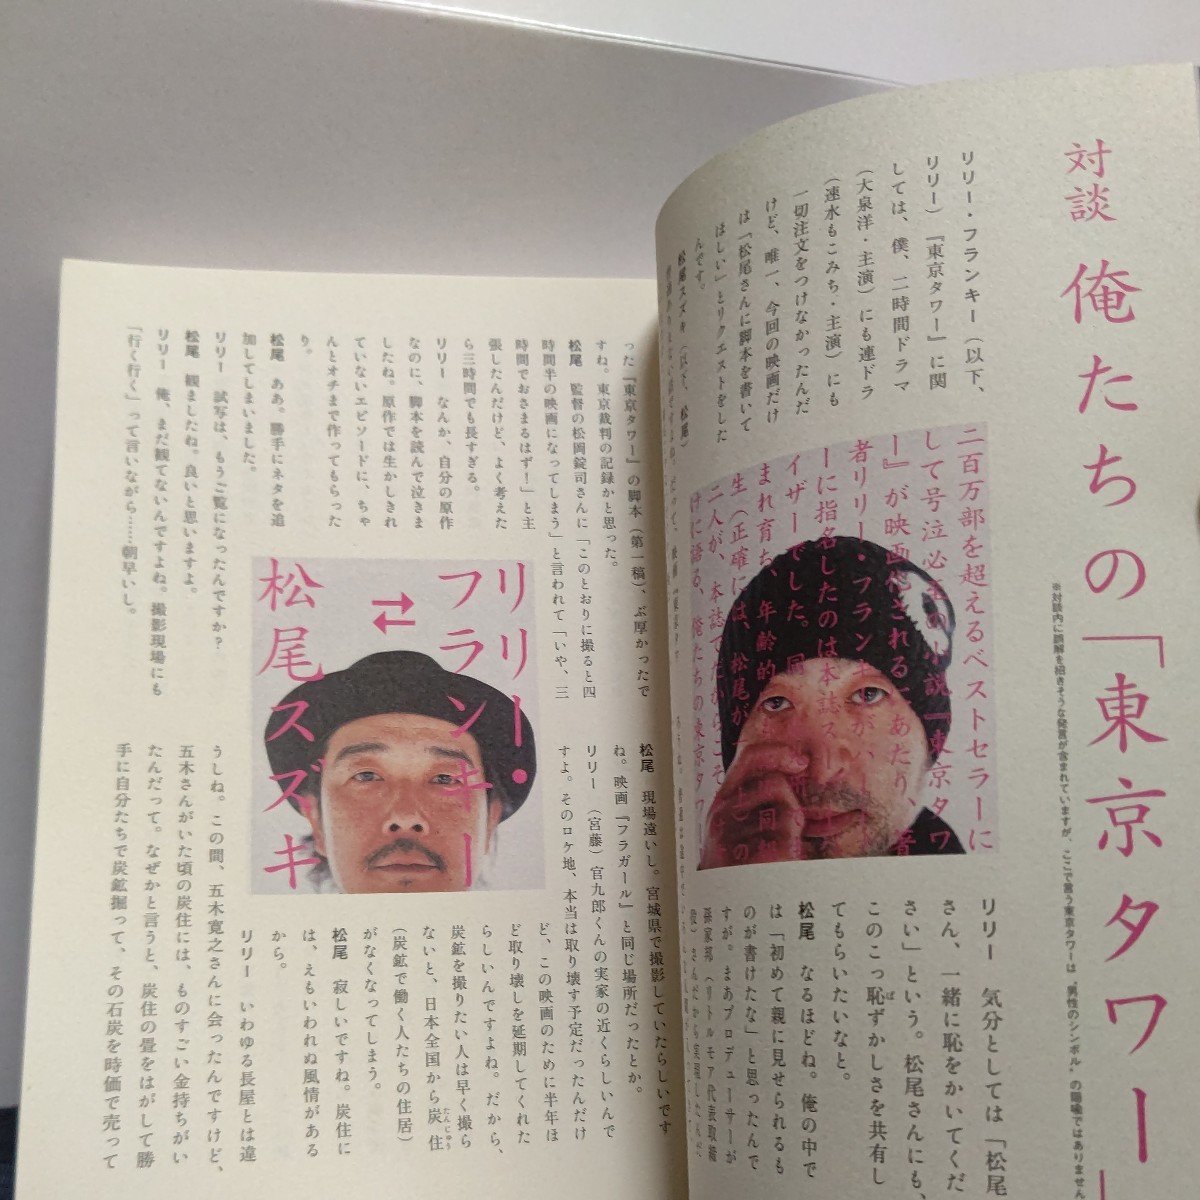 対談 俺たちの「東京タワー」
※対談内に誤解を招きそうな発言が含まれていますが、ここで言う東京タワーは“男性のシンボル”の暗喩ではありません
リリー・フランキー（以下、
リリー）『東京タワー』に関
しては、僕、二時間ドラマ
（大泉洋・主演）にも連ドラ
（速水もこみち・主演）にも
一切注文をつけなかったんだ
けど、唯一、今回の映画だけ
は「松尾さんに脚本を書いて
ほしい」とリクエストをした
んです。
松尾スズキ（以下、松尾）
二百万部を超えるベストセラーに
して号泣必至の小説『東京タワ
ー』が映画化されるにあたり、著
者リリー・フランキーが
ーに指名したのは本誌スー
イザーでした。同
まれ育ち、年齢的
生（正確には、松尾が
二人が、本誌でだからこそ
けに語る、俺たちの東京タワー。
リリー 気分としては「松尾
さん、一緒に恥をかいてくだ
さい」という。松尾さんにも、
このこっ恥ずかしさを共有し
てもらいたいなと。
松尾 なるほどね。俺の中で
は「初めて親に見せられるも
のが書けたな」と思ったんで
すが。まあプロデューサーが
孫家邦（リトルモア代表取締
役）さんだから実現したんだ
った『東京タワー』の脚本（第一稿）、ぶ厚かったで
すね。東京裁判の記録かと思った。
松尾 監督の松岡錠司さんに「このとおりに撮ると四
時間半の映画になってしまう」と言われて「いや、三
時間でおさまるはず！」と主
張したんだけど、よく考えた
ら三時間でも長すぎる。
リリー なんか、自分の原作
なのに、脚本を読んで泣きま
したね。原作では生かしきれ
ていないエピソードに、ちゃ
んとオチまで作ってもらった
り。
松尾 ああ。勝手にネタを追
加してしまいました。
リリー 試写は、もうご覧になったんですか？
松尾 観ましたね。良いと思いますよ。
リリー 俺、まだ観てないんですよね。撮影現場にも
「行く行く」って言いながら……朝早いし。
リリー・
フランキー
⇄
松尾スズキ
松尾 現場遠いし。宮城県で撮影していたらしいです
ね。映画『フラガール』と同じ場所だったとか。
リリー （宮藤）官九郎くんの実家の近くらしいんで
すよ。そのロケ地、本当は取り壊す予定だったんだけ
ど、この映画のために半年ほ
ど取り壊しを延期してくれた
らしいんですよね。だから、
炭鉱を撮りたい人は早く撮ら
ないと、日本全国から炭住
たんじゅう
（炭鉱で働く人たちの住居）
がなくなってしまう。
松尾 寂しいですね。炭住に
は、えもいわれぬ風情がある
から。
リリー いわゆる長屋とは違
うしね。この間、五木寛之さんに会ったんですけど、
五木さんがいた頃の炭住には、ものすごい金持ちがい
たんだって。なぜかと言うと、炭住の畳をはがして勝
手に自分たちで炭鉱掘って、その石炭を時価で売って